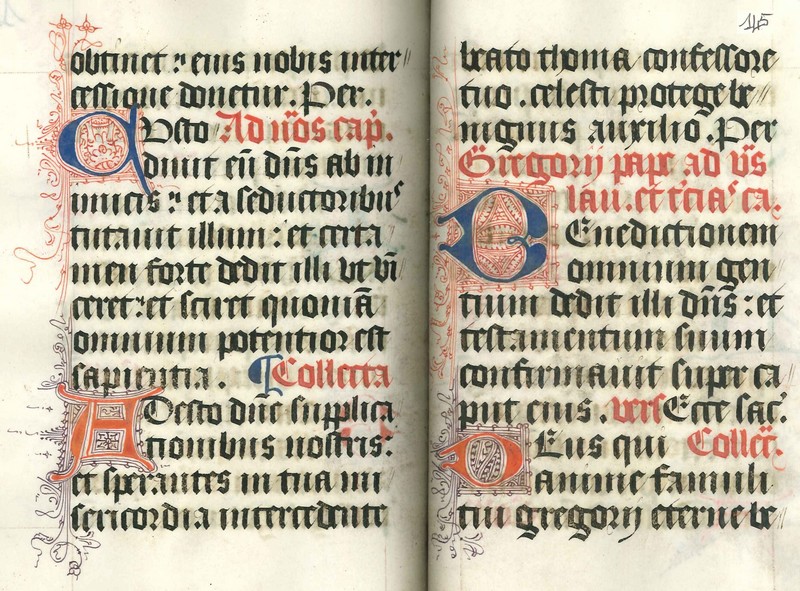 obtinet : eius nobis inter//
cessione donetur. Per.
Custo Ad nōs cap̄.
diuit eū dn̄s ab in
imicis : et a seductoribus
tutauit illum : et certa
men forte dedit illi vt vī
ceret : et sciret quoniā
omnium potentior est
sapientia. ¶ Collecta
Adesto dn̄e supplica
tionibus nostris :
et sperantes in tua mi
sericordia intercedente
145
beato thoma confessore
tuo . celesti protege be//
nignus auxilio . Per
Gregorij pape ad v̄s
lau. et t̄cia ca.
Benedictionem
omnium gen
tium dedit illi dn̄s : et
testamentum suum
confirmauit super ca
put eius . vers Ecce sac̄.
Deus qui Collect̄.
anime famuli
tui gregorij eterne be